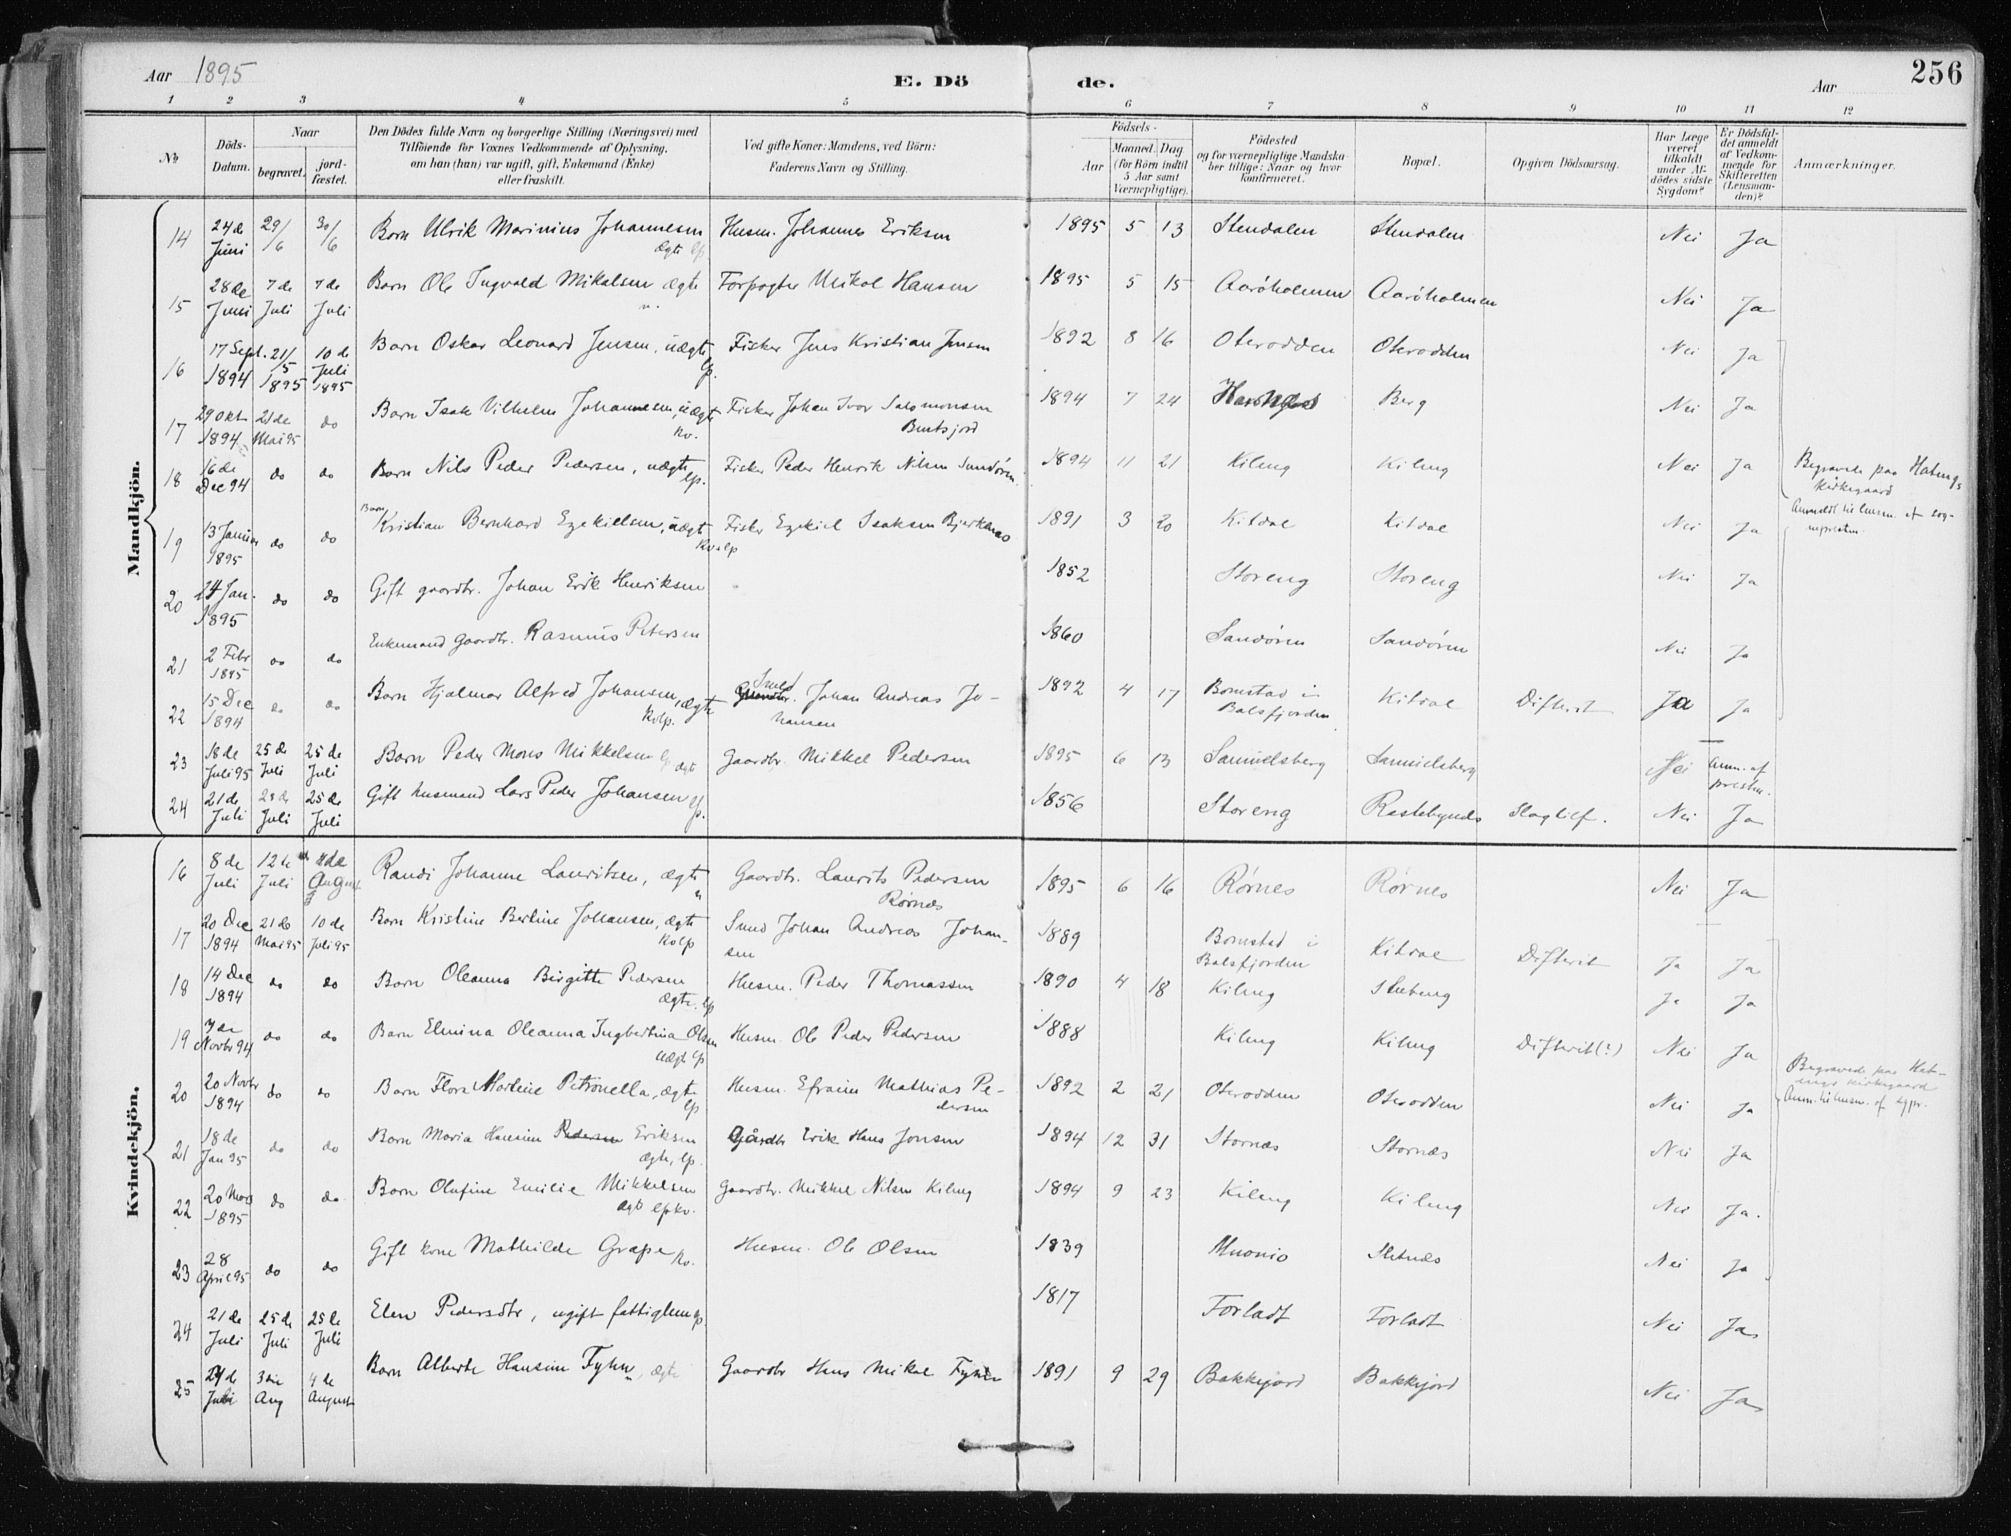 Aar 1895
E. Dö de.
Aar
256
1 2 3 4 5 6 7 8 9 10 11 12
No
Döds-Datum.
Naar
begravet.
jord-fæstet.
Den Dödes fulde Navn og borgerlige Stilling (Næringsvei) med
Tilföiende for Voxnes Vedkommende af Oplysning,
om han (hun) var ugift, gift, Enkemand (Enke)
eller fraskilt.
Ved gifte Koner: Mandens, ved Börn:
Faderens Navn og Stilling.
Födsels-
Aar
Maaned. Dag
(for Börn indtil
5 Aar samt
Værnepligtige).
Födested
og for værnepligtige Mandska-
ber tillige: Naar og hvor
konfirmeret.
Bopæl.
Opgiven Dödsaarsag.
Har Læge
været
tilkaldt
under Af-
dödes sidste
Sygdom?
Er Dödsfal-
det anmeldt
af Vedkom-
mende for
Skifteretten
(Lensman-
den)?
Anmærkninger.
Mandkjön.
14 24de Juni 29/6 30/6 Barn Ulrik Marinius Johannesen ægte lp Husm. Johannes Eriksen 1895 5 13 Stendalen Stendalen Nei Ja
15 28de Juni 7de Juli 7de Juli Barn Ole Ingvald Mikalsen ægte n. Forpagter Mikal Hansen 1895 5 15 Aaröholmen Aaröholmen Nei Ja
16 17 Sept. 1894 21/5 1895 10de Juli 1895 Barn Oskar Leonard Jensen, uægte lp. Fisker Jens Kristian Jensen 1892 8 16 Oterodden Oterodden Nei Ja
17 29 Okt 1894 21de Mai 95 do Barn Isak Vilhelm Johannesen, uægte kv. Fisker Johan Ivar Salomonsen 1894 7 24 Berg Nei Ja
18 16de Dec 94 do do Barn Nils Peder Pedersen, uægte lp. Fisker Peder Henrik Nilsen Sandören 1894 11 21 Kileng Kileng Nei Ja
19 13 Januar 1895 do do Barn Kristian Bernhard Ezekielsen, uægte Kv lp Fisker Ezekiel Isaksen Bjerknæs 1891 3 20 Kitdal Kitdal Nei Ja
20 24 Jan. 1895 do do Gift gaardbr. Johan Erik Henriksen 1852 Storeng Storeng Nei Ja
21 2 Febr 1895 do do Enkemand Gaardbr. Rasmus Petersen 1860 Sandören Sandören Nei Ja
22 15 Dec 1894 do do Barn Hjalmar Alfred Johansen, ægte Kvlp. Smed Johan Andreas Johansen 1892 4 17 Bomstad i Balsfjorden Kitdal Difterit Ja Ja
Begravede paa Hatengs
Kirkegaard
Anmeldt til lensm. af sog-
nepresten.
23 18de Juli 95 25de Juli 25de Juli Barn Peder Mons Mikkelsen lp ægte Gaardbr. Mikkel Pedersen 1895 6 13 Samuelsberg Samuelsberg Nei Anm. af presten.
24 21de Juli 25de Juli 25de Juli Gift husmand Lars Peder Johansen lp. 1856 Storeng Rastebynds Slagtilf. Nei Ja
Kvindekjön.
16 8de Juli 12te Juli 4de August Randi Johanne Lauritsen, ægte n Gaardbr. Laurits Pedersen Rörnes 1895 6 16 Rörnes Rörnes Nei Ja
17 20 Dec 1894 21de Mai 95 10de Juli 95 Barn Kristine Berline Johansen, ægte Kvlp Smed Johan Andreas Johansen 1889 Bomstad i Balsfjorden Kitdal Difterit Ja Ja
18 14 Dec 1894 do do Barn Oleanna Birgitte Pedersen ægte. lp Husm. Peder Thomassen 1890 4 18 Kileng Ja Ja
19 7de Novbr 94 do do Barn Elmina Oleanna Ingbertina Olsen uægte lp Husm. Ole Peder Pedersen 1888 Kileng Kileng Difterit(?) Nei Ja
20 20 Novbr 1894 do do Barn Flora Marlene Petronella, ægte lp Husm. Efraim Mathias Pedersen 1892 2 21 Oterodden Oterodden Nei Ja
21 18de Jan 95 do do Barn Maria Hansine Pedersen Eriksen ægte, lp. Gårdbr Erik Hans Jonsen 1894 12 31 Stornæs Stornæs Nei Ja
22 20 Mars 1895 do do Barn Olufine Emilie Mikkelsen ægte lpkv. Gaardbr. Mikkel Nilsen Kileng 1894 9 23 Kileng Kileng Nei Ja.
23 28 April 95 do do Gift kone Mathilde Grape kv. Husm. Ole Olsen 1839 Muonio Nei Ja
Begravede paa Hat-
engs kirkegaard
Anm. til lensm. af sgpr.
24 21de Juli 25de Juli 25de Juli Elen Pedersdtr, ugift fattiglem lp. 1817 Forladt Forladt Nei Ja
25 29de Juli 3die Aug 4de August Barn Alberte Hansine Fyhn n, ægte Gaardbr Hans Mikal Fyhn 1891 9 29 Bakkejord Bakkejord Nei Ja